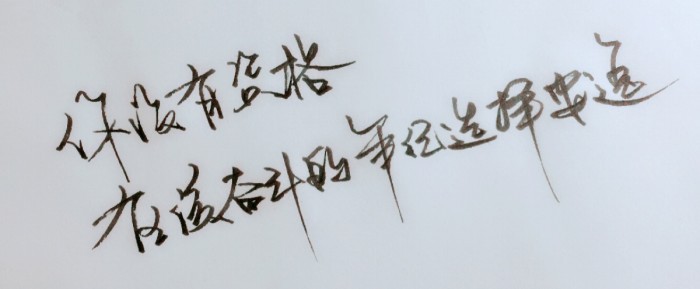 你没有资格
在该奋斗的年纪选择安逸